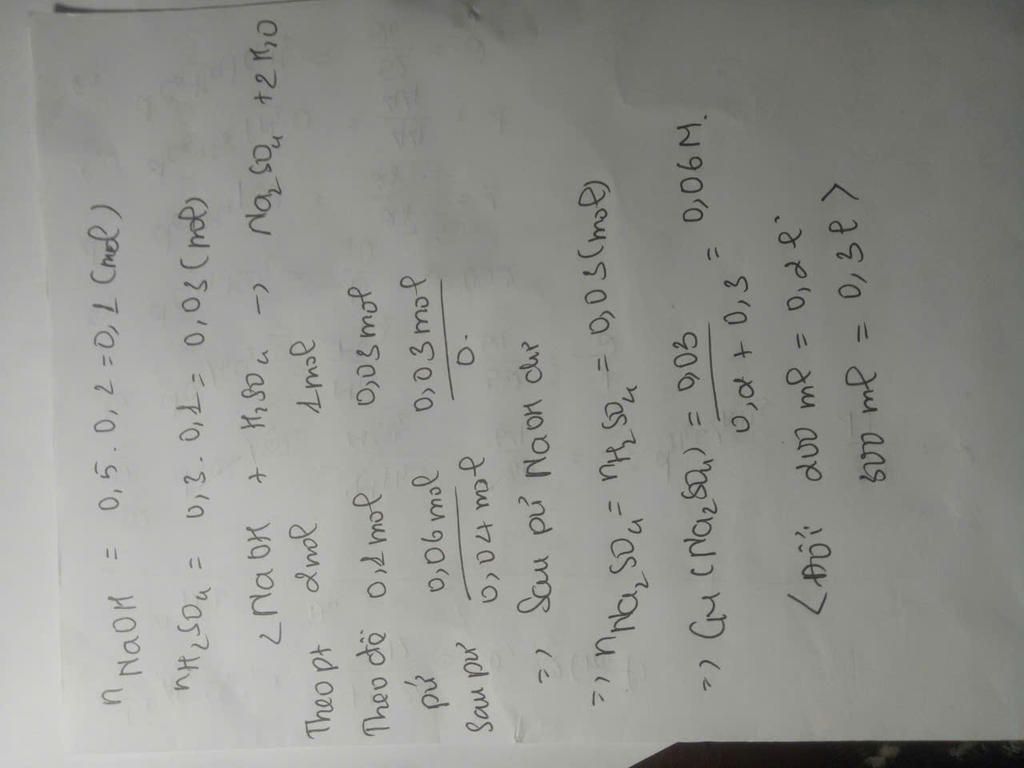 nNaOH = 0,5 . 0,2 = 0,1 (mol)
nH2SO4 = 0,3 . 0,1 = 0,03 (mol)
2NaOH + H2SO4 -> Na2SO4 + 2H2O
Theo pt 2mol 1mol
Theo đề 0,1mol 0,03mol
pứ 0,06mol 0,03mol
sau pứ 0,04mol 0.
=> Sau pứ NaOH dư
=> nNa2SO4 = nH2SO4 = 0,03 (mol)
=> CM (Na2SO4) = 0,03 / 0,2 + 0,3 = 0,06M.
< Đổi 200 ml = 0,2 l
300 ml = 0,3 l >